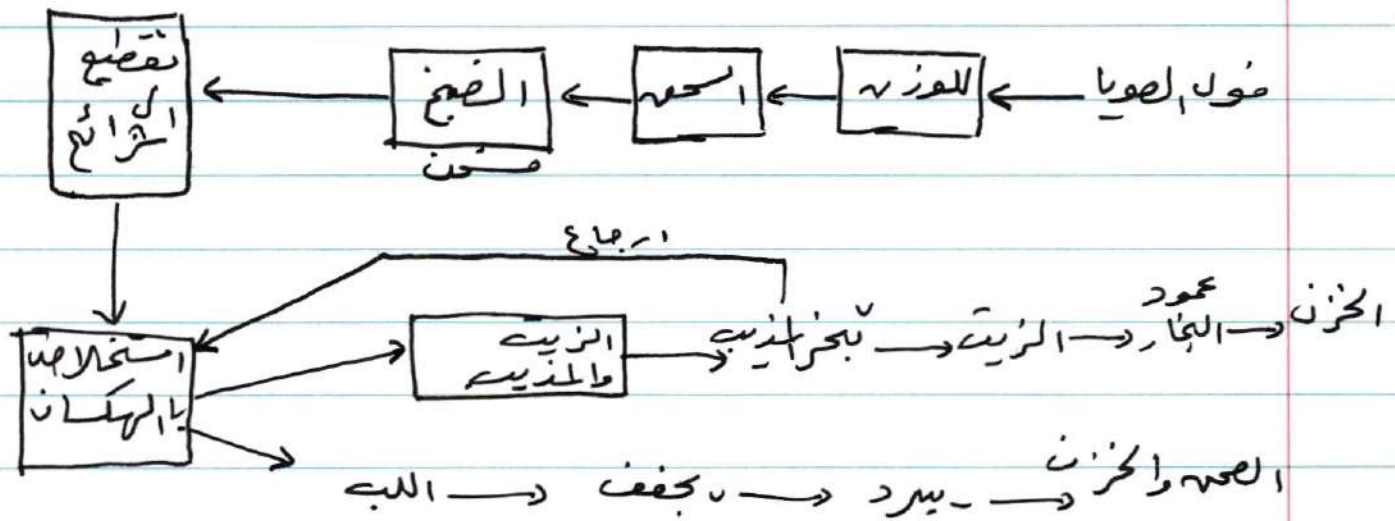 فول الصويا
للوزن
السحق
الضبخ
مسخن
تقطيع
ال
شرائح
ارجاع
استخلاص
باالهكسان
الزيت
والمذيب
تبخر المذيب
الزيت
عمود
البخار
الخزن
اللب
يجفف
يبرد
الصحن والخزن